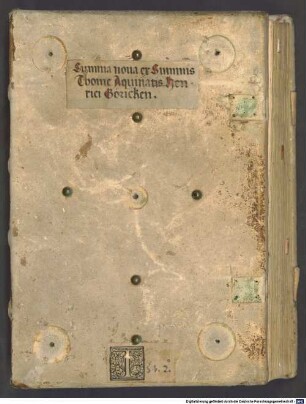 Summa noua ex Summis
Thome Aquinatis Hen-
rici Goricken.
2.
Digitalisierung gefördert durch die Deutsche Forschungsgemeinschaft